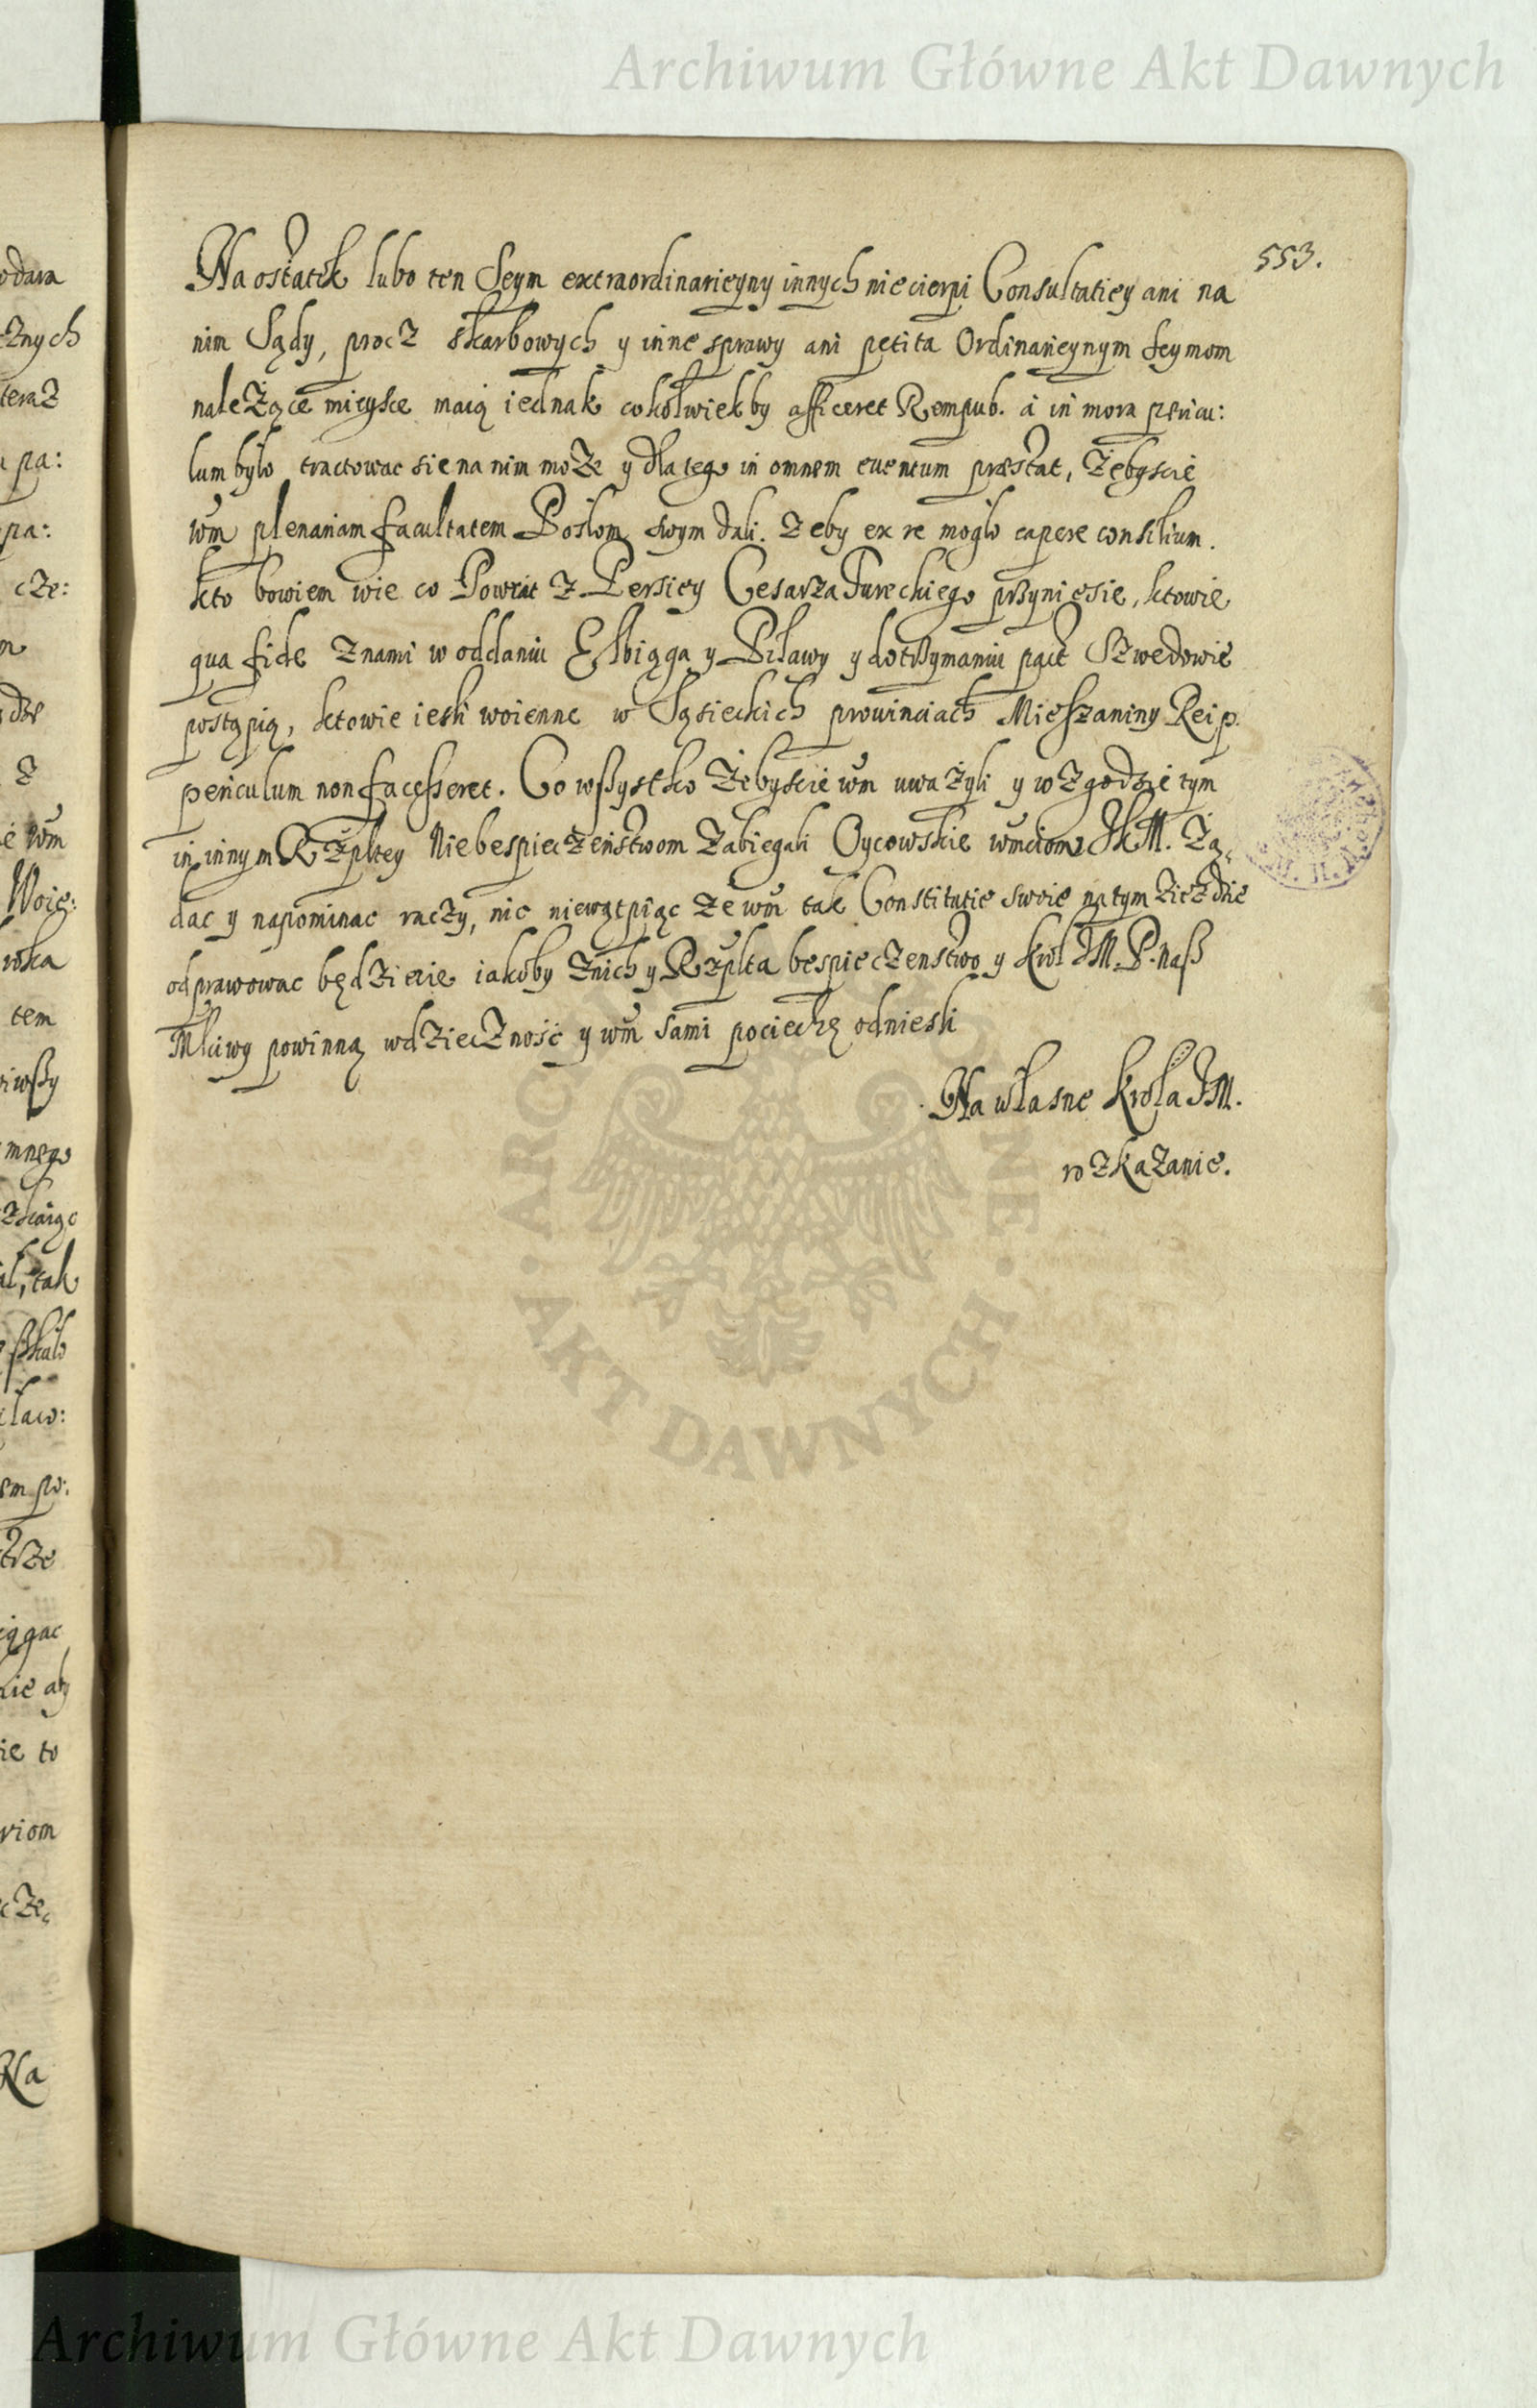 Archiwum Główne Akt Dawnych
553.
Na ostatek lubo ten Seym extraordinarieyny innych niecierpi Consultatiey ani na
nim Sądy, procz skarbowych y inne sprawy ani petita Ordinarieynym Seymom
należące mieysce maią iednak cokolwiek by afficeret Rempub. a in mora pericu:
lum bylo tractowac sie na nim może y dla tego in omnem euentum præstat, żebyscie
wm̃ plenariam facultatem Posłom swym dali. żeby ex re moglo capere consilium.
kto bowiem wie co Powrót z Persiey Cesarza Tureckiego przyniesie, kto wie
qua fide z nami w oddaniu Elbiąga y Piławy y dotrzymaniu pact Szwedowie
postąpią, kto wie ieśli woienne w Sąsieckich prouinciach Mieszaniny Reip.
periculum non facesseret. Co wszystko żebyscie wm̃ uważyli y w zgodzie tym
in innym Rzpltey Niebespieczeństwom zabiegali Oycowskie wm̃ciom JKM. żą,
dac y napominac raczy, nic niewątpiąc że wm̃ tak Constitutie swoie na tym zieździe
odprawowac będziecie iakoby z nich y Rzplta bespieczenstwo y Krol JM. P. nasz
Młciwy powinną wdzieczność y wm̃ sami pociechę odniesli
Na własne Krola JM.
rozkazanie.
odara
cznych
teraz
pa:
pa:
cze:
z
wm̃
Woie:
tem
mnego
tak
em po:
ie to
riom
cze,
Na
AKT DAWNYCH
Archiwum Główne Akt Dawnych